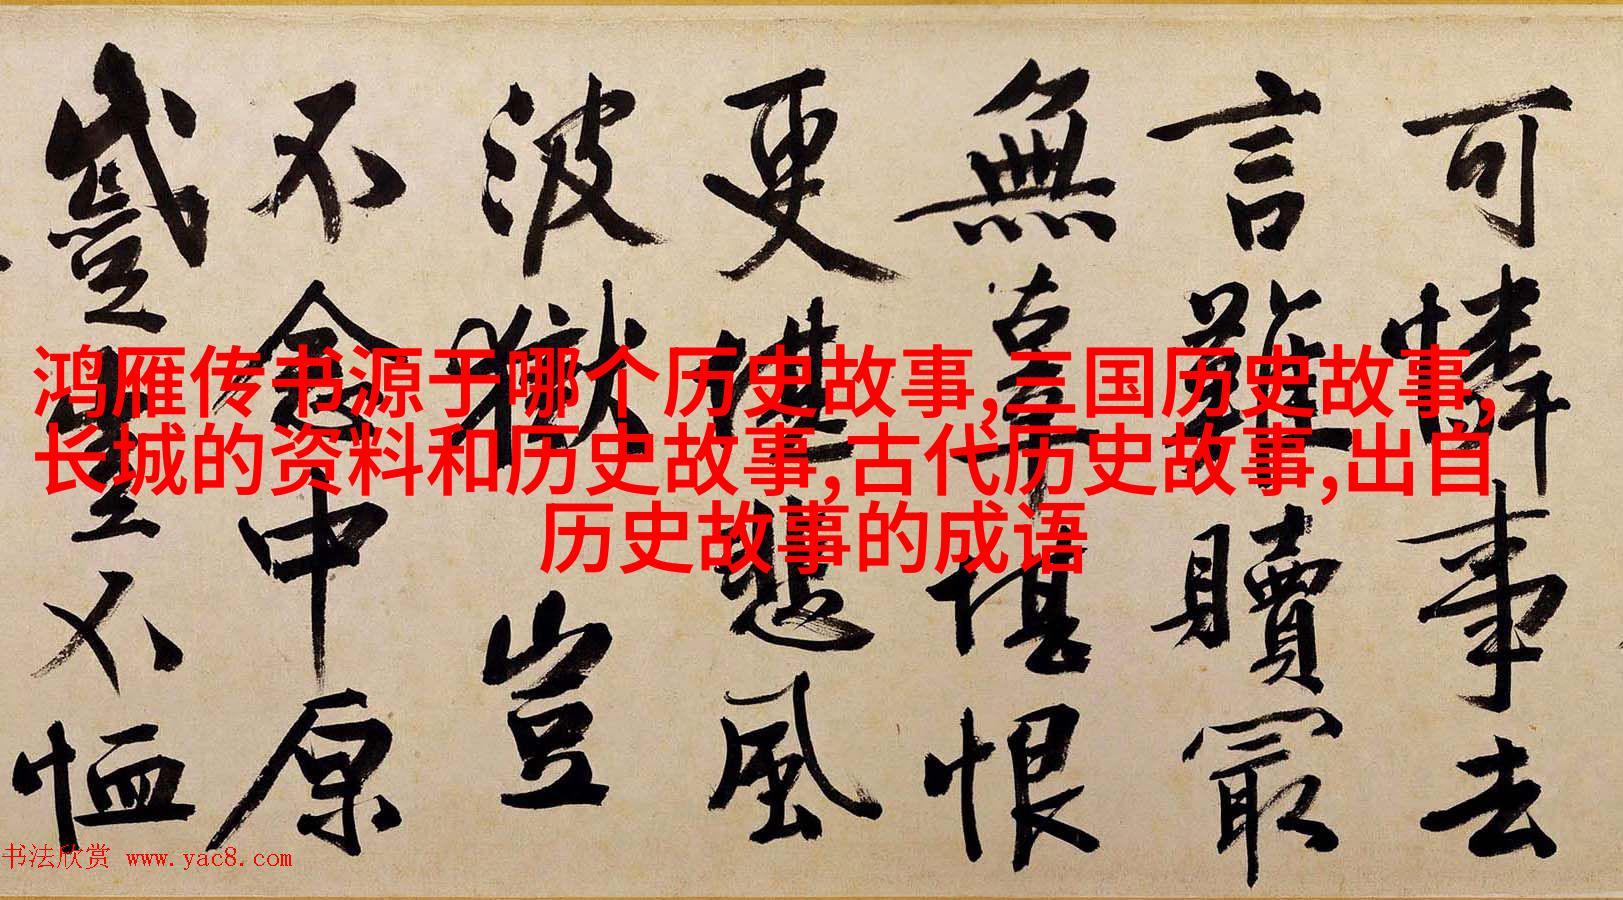 鸿雁传书源于哪个历史故事,三国历史故事,
长城的资料和历史故事,古代历史故事,出自
历史故事的成语
可憐事去
言難贖最
無辜堪恨
更堪悲風
波獄豈
不念中原
不恤
书法欣赏 www.yac8.com